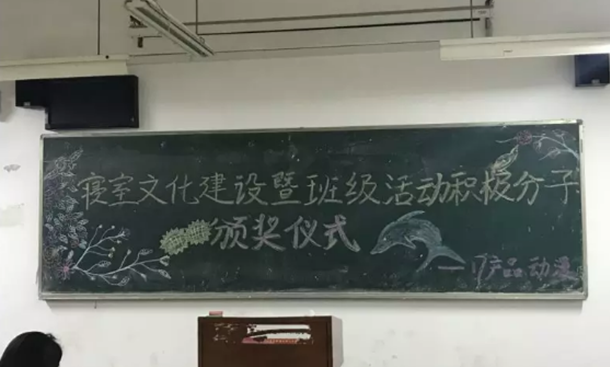 寝室文化建设暨班级活动积极分子
颁奖仪式
—17产品动漫